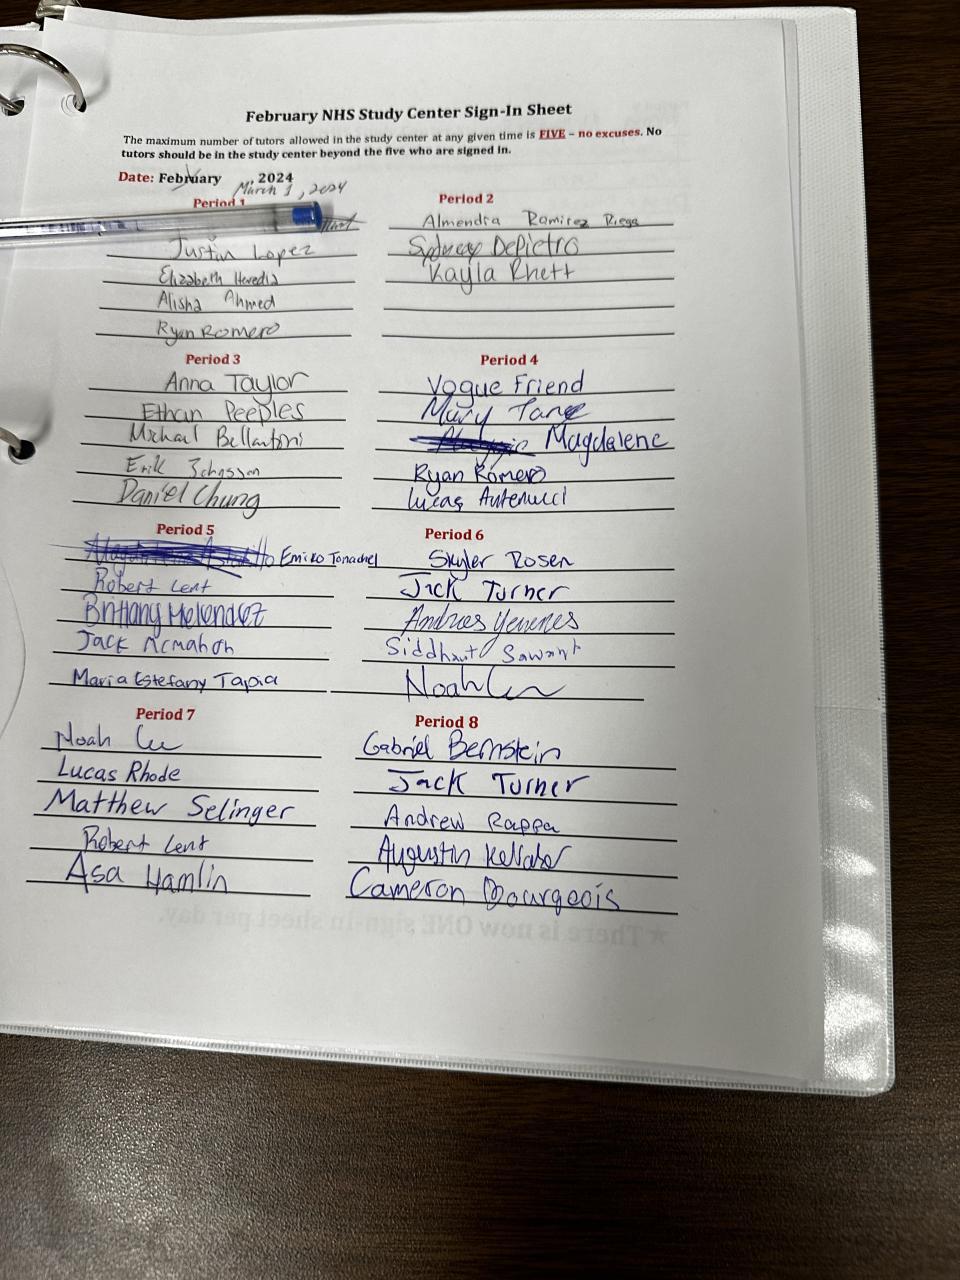 February NHS Study Center Sign-In Sheet
The maximum number of tutors allowed in the study center at any given time is FIVE – no excuses. No
tutors should be in the study center beyond the five who are signed in.
Date: February , 2024
March 1, 2024
Period 1
Justin Lopez
Elizabeth Heredia
Alisha Ahmed
Ryan Romero
Period 2
Almendra Ramirez Riega
Sydney DePietro
Kayla Rhett
Period 3
Anna Taylor
Ethan Peeples
Michael Bellantoni
Erik
Daniel Chung
Period 4
Vogue Friend
Mary Tang
Magdalene
Ryan Romero
Lucas Antenucci
Period 5
Emiko
Robert Lent
Brittany Melendez
Jack McMahon
Maria Estefany Tapia
Period 6
Skyler Rosen
Jack Turner
Andres Yevenes
Siddhant Sawant
Noah
Period 7
Noah
Lucas Rhode
Matthew Selinger
Robert Lent
Asa Hamlin
Period 8
Gabriel Bernstein
Jack Turner
Andrew Rappa
Augustin
Cameron Bourgeois
★ There is now ONE sign-in sheet per day.